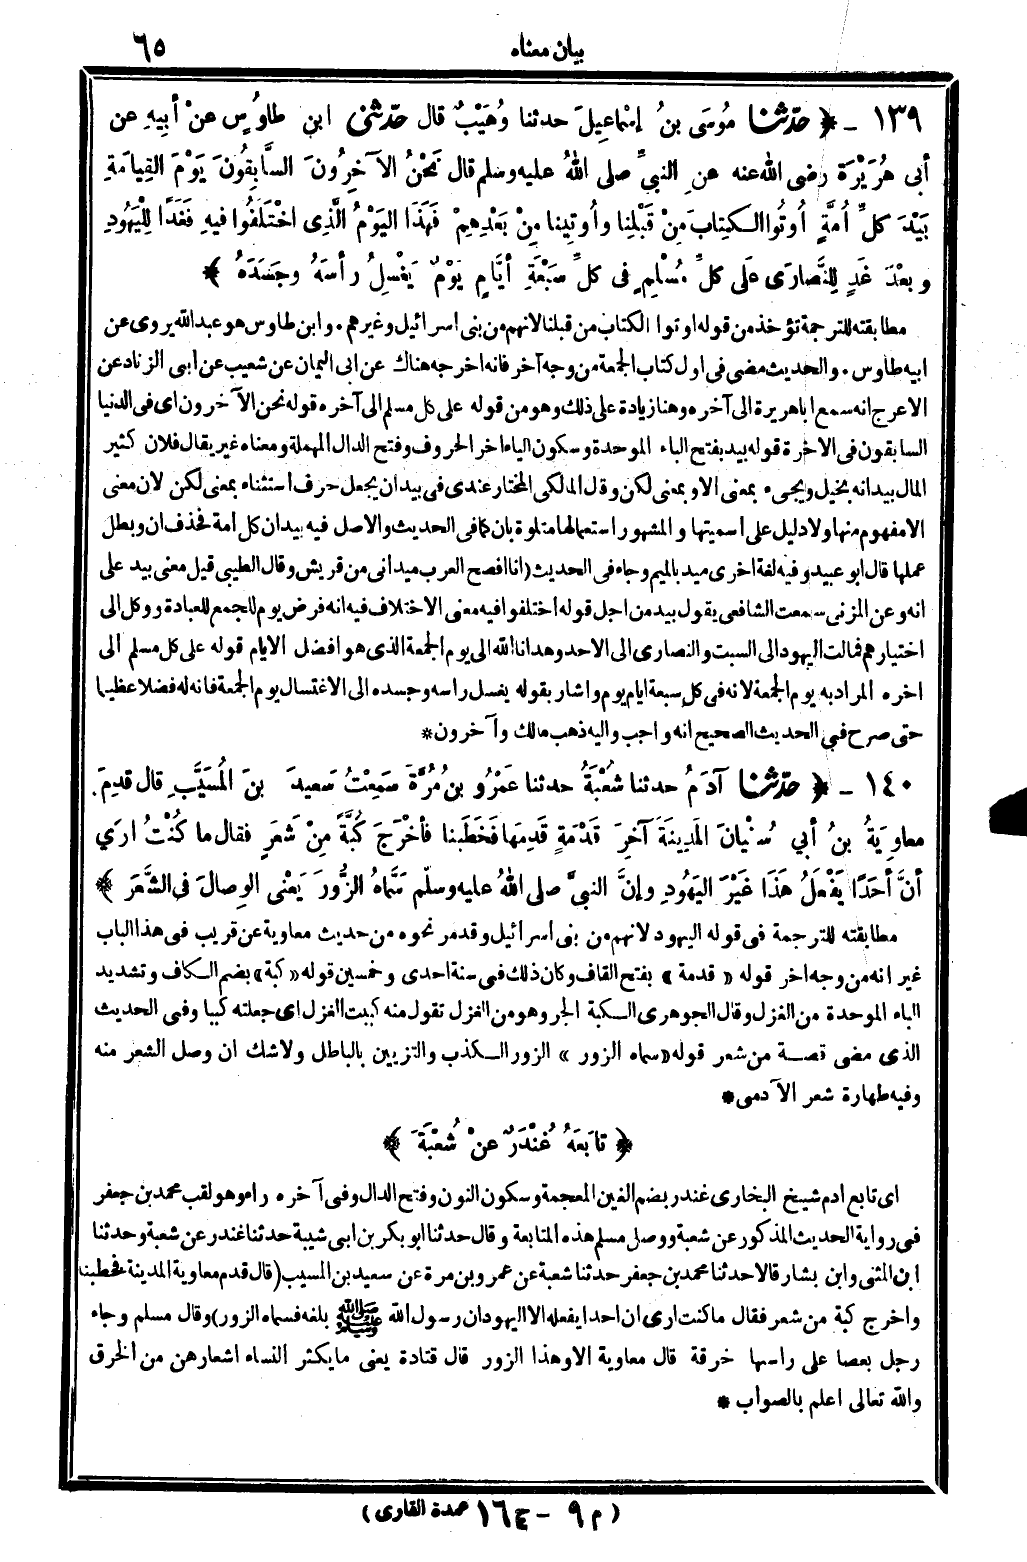 بيان معناه
٦٥
١٣٩ - ﴿ حَدَّثَنَا مُوسَى بنُ إسْماعِيلَ حدثنا وُهَيْبٌ قال حَدَّثَنِي ابن طاوُسٍ عنْ أبِيهِ عن
أبى هُرَيْرَةَ رضى الله عنه عنِ النبيِّ صلى اللهُ عليه وسلم قال نَحْنُ الآخِرُونَ السَّابِقُونَ يَوْمَ القِيامَةِ
بَيْدَ كلِّ أُمَّةٍ أُوتُوا الكِتابَ مِنْ قَبْلِنا وأُوتِينا مِنْ بَعْدِهِمْ فَهَذَا اليَوْمُ الَّذِى اخْتَلَفُوا فيهِ فَغَدًا لِلْيَهُودِ
وبعْدَ غَدٍ لِلنَّصارَى عَلَى كلِّ مُسْلِمٍ فى كلِّ سَبْعَةِ أيَّامٍ يَوْمٌ يَغْسِلُ رأسَهُ وجَسَدَهُ ﴾
مطابقته للترجمة تؤخذ من قوله اوتوا الكتاب من قبلنا لانهم من بنى اسرائيل وغيرهم. وابن طاوس هو عبدالله يروى عن
ابيه طاوس. والحديث مضى فى اول كتاب الجمعة من وجه آخر فانه اخرجه هناك عن ابى اليمان عن شعيب عن ابى الزناد عن
الاعرج انه سمع اباهريرة الى آخره وهنا زيادة على ذلك وهو من قوله على كل مسلم الى آخره قوله نحن الآخرون اى فى الدنيا
السابقون فى الاخرة قوله بيد بفتح الباء الموحدة وسكون الياء اخر الحروف وفتح الدال المهملة ومعناه غير يقال فلان كثير
المال بيد انه بخيل ويجىء بمعنى الا وبمعنى لكن وقال المالكى المختار عندى فى بيد ان يجعل حرف استثناء بمعنى لكن لان معنى
الا مفهوم منها ولا دليل على اسميتها والمشهور استعمالها متلوة بان كما فى الحديث والاصل فيه بيد ان كل أمة فحذف ان وبطل
عملها قال ابو عبيد وفيه لغة اخرى ميد بالميم وجاء فى الحديث (انا افصح العرب ميد انى من قريش وقال الطيبى قيل معنى بيد على
انه وعن المزنى سمعت الشافعى يقول بيد من اجل قوله اختلفوا فيه معنى الاختلاف فيه انه فرض يوم للجمع للعبادة ووكل الى
اختيارهم فمالت اليهود الى السبت والنصارى الى الاحد وهدانا الله الى يوم الجمعة الذى هو افضل الايام قوله على كل مسلم الى
اخره المراد به يوم الجمعة لانه فى كل سبعة ايام يوم واشار بقوله يغسل راسه وجسده الى الاغتسال يوم الجمعة فانه له فضلا عظيما
حتى صرح فى الحديث الصحيح انه واجب واليه ذهب مالك وآخرون*
١٤٠ - ﴿ حَدَّثَنَا آدَمُ حدثنا شُعْبَةُ حدثنا عَمْرُو بنُ مُرَّةَ سَمِعْتُ سَعيدَ بنَ المُسَيَّبِ قال قَدِمَ
معاوِيَةُ بنُ أبي سُفْيانَ المَدِينَةَ آخِرَ قَدْمَةٍ قَدِمَها فَخَطَبنا فأخْرَجَ كُبَّةً مِنْ شَعَرٍ فقال ما كُنْتُ ارَي
أنَّ أحَدًا يَفْعَلُ هَذَا غَيْرَ اليَهُودِ وإنَّ النبيَّ صلى اللهُ عليه وسلّم سَمَّاهُ الزُّورَ يَعْنِى الوِصالَ فى الشَّعَرِ ﴾
مطابقته للترجمة فى قوله اليهود لانهم من بنى اسرائيل وقد مر نحوه من حديث معاوية عن قريب فى هذا الباب
غير انه من وجه اخر قوله « قدمة » بفتح القاف وكان ذلك فى سنة احدى وخمسين قوله « كبة » بضم الكاف وتشديد
الباء الموحدة من الغزل وقال الجوهرى الكبة الجروهو من الغزل تقول منه كببت الغزل اى جعلته كببا وفى الحديث
الذى مضى قصة من شعر قوله « سماه الزور » الزور الكذب والتزيين بالباطل ولا شك ان وصل الشعر منه
وفيه طهارة شعر الآدمى*
﴿ تابَعَهُ غُنْدَرٌ عنْ شُعْبَةَ ﴾
اى تابع ادم شيخ البخارى غندر بضم الغين المعجمة وسكون النون وفتح الدال وفى آخره راء وهو لقب محمد بن جعفر
فى رواية الحديث المذكور عن شعبة ووصل مسلم هذه المتابعة وقال حدثنا ابو بكر بن ابى شيبة حدثنا غندر عن شعبة وحدثنا
ابن المثنى وابن بشار قالا حدثنا محمد بن جعفر حدثنا شعبة عن عمرو بن مرة عن سعيد بن المسيب (قال قدم معاوية المدينة فخطبنا
واخرج كبة من شعر فقال ما كنت ارى ان احدا يفعله الا اليهود ان رسول الله ﷺ بلغه فسماه الزور) وقال مسلم وجاء
رجل بعصا على راسها خرقة قال معاوية الا وهذا الزور قال قتادة يعنى ما يكثر النساء اشعارهن من الخرق
والله تعالى اعلم بالصواب *
(م ٩ - ج ١٦ عمدة القارى)